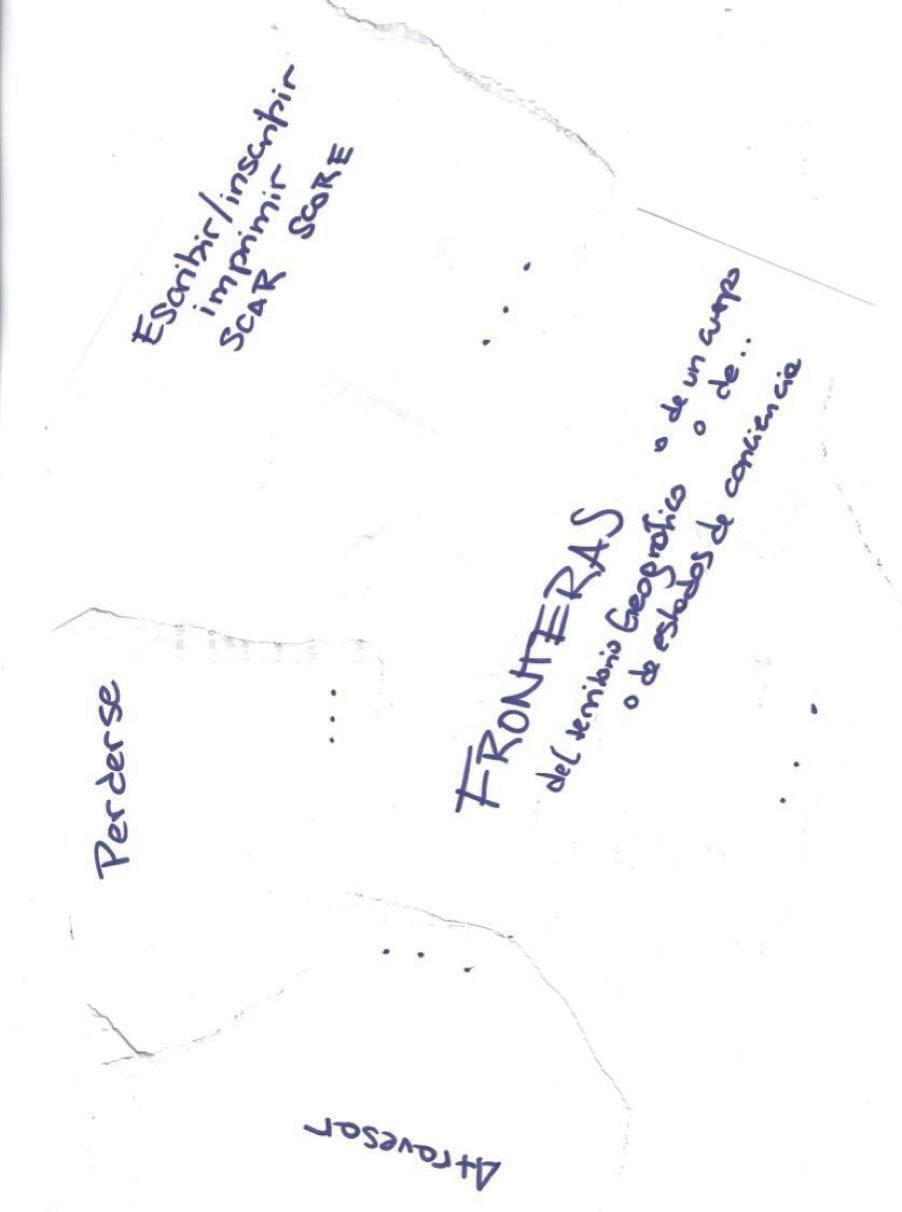 Escribir/inscribir
imprimir
SCAR SCORE
...
FRONTERAS
del territorio Geográfico o de un cuerpo
o de estados de conciencia o de...
...
Perderse
...
Atravesar
...